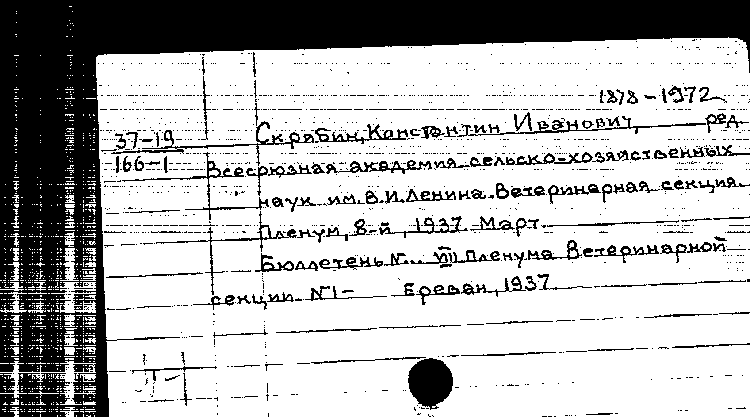 1878-1972
37-19 Скрябин, Константин Иванович, ред.
166-1 Всесоюзная академия сельско-хозяйственных
наук им. В.И.Ленина. Ветеринарная секция.
Пленум, 8-й, 1937. Март.
Бюллетень N... VIII Пленума Ветеринарной
секции. N1- Ереван, 1937